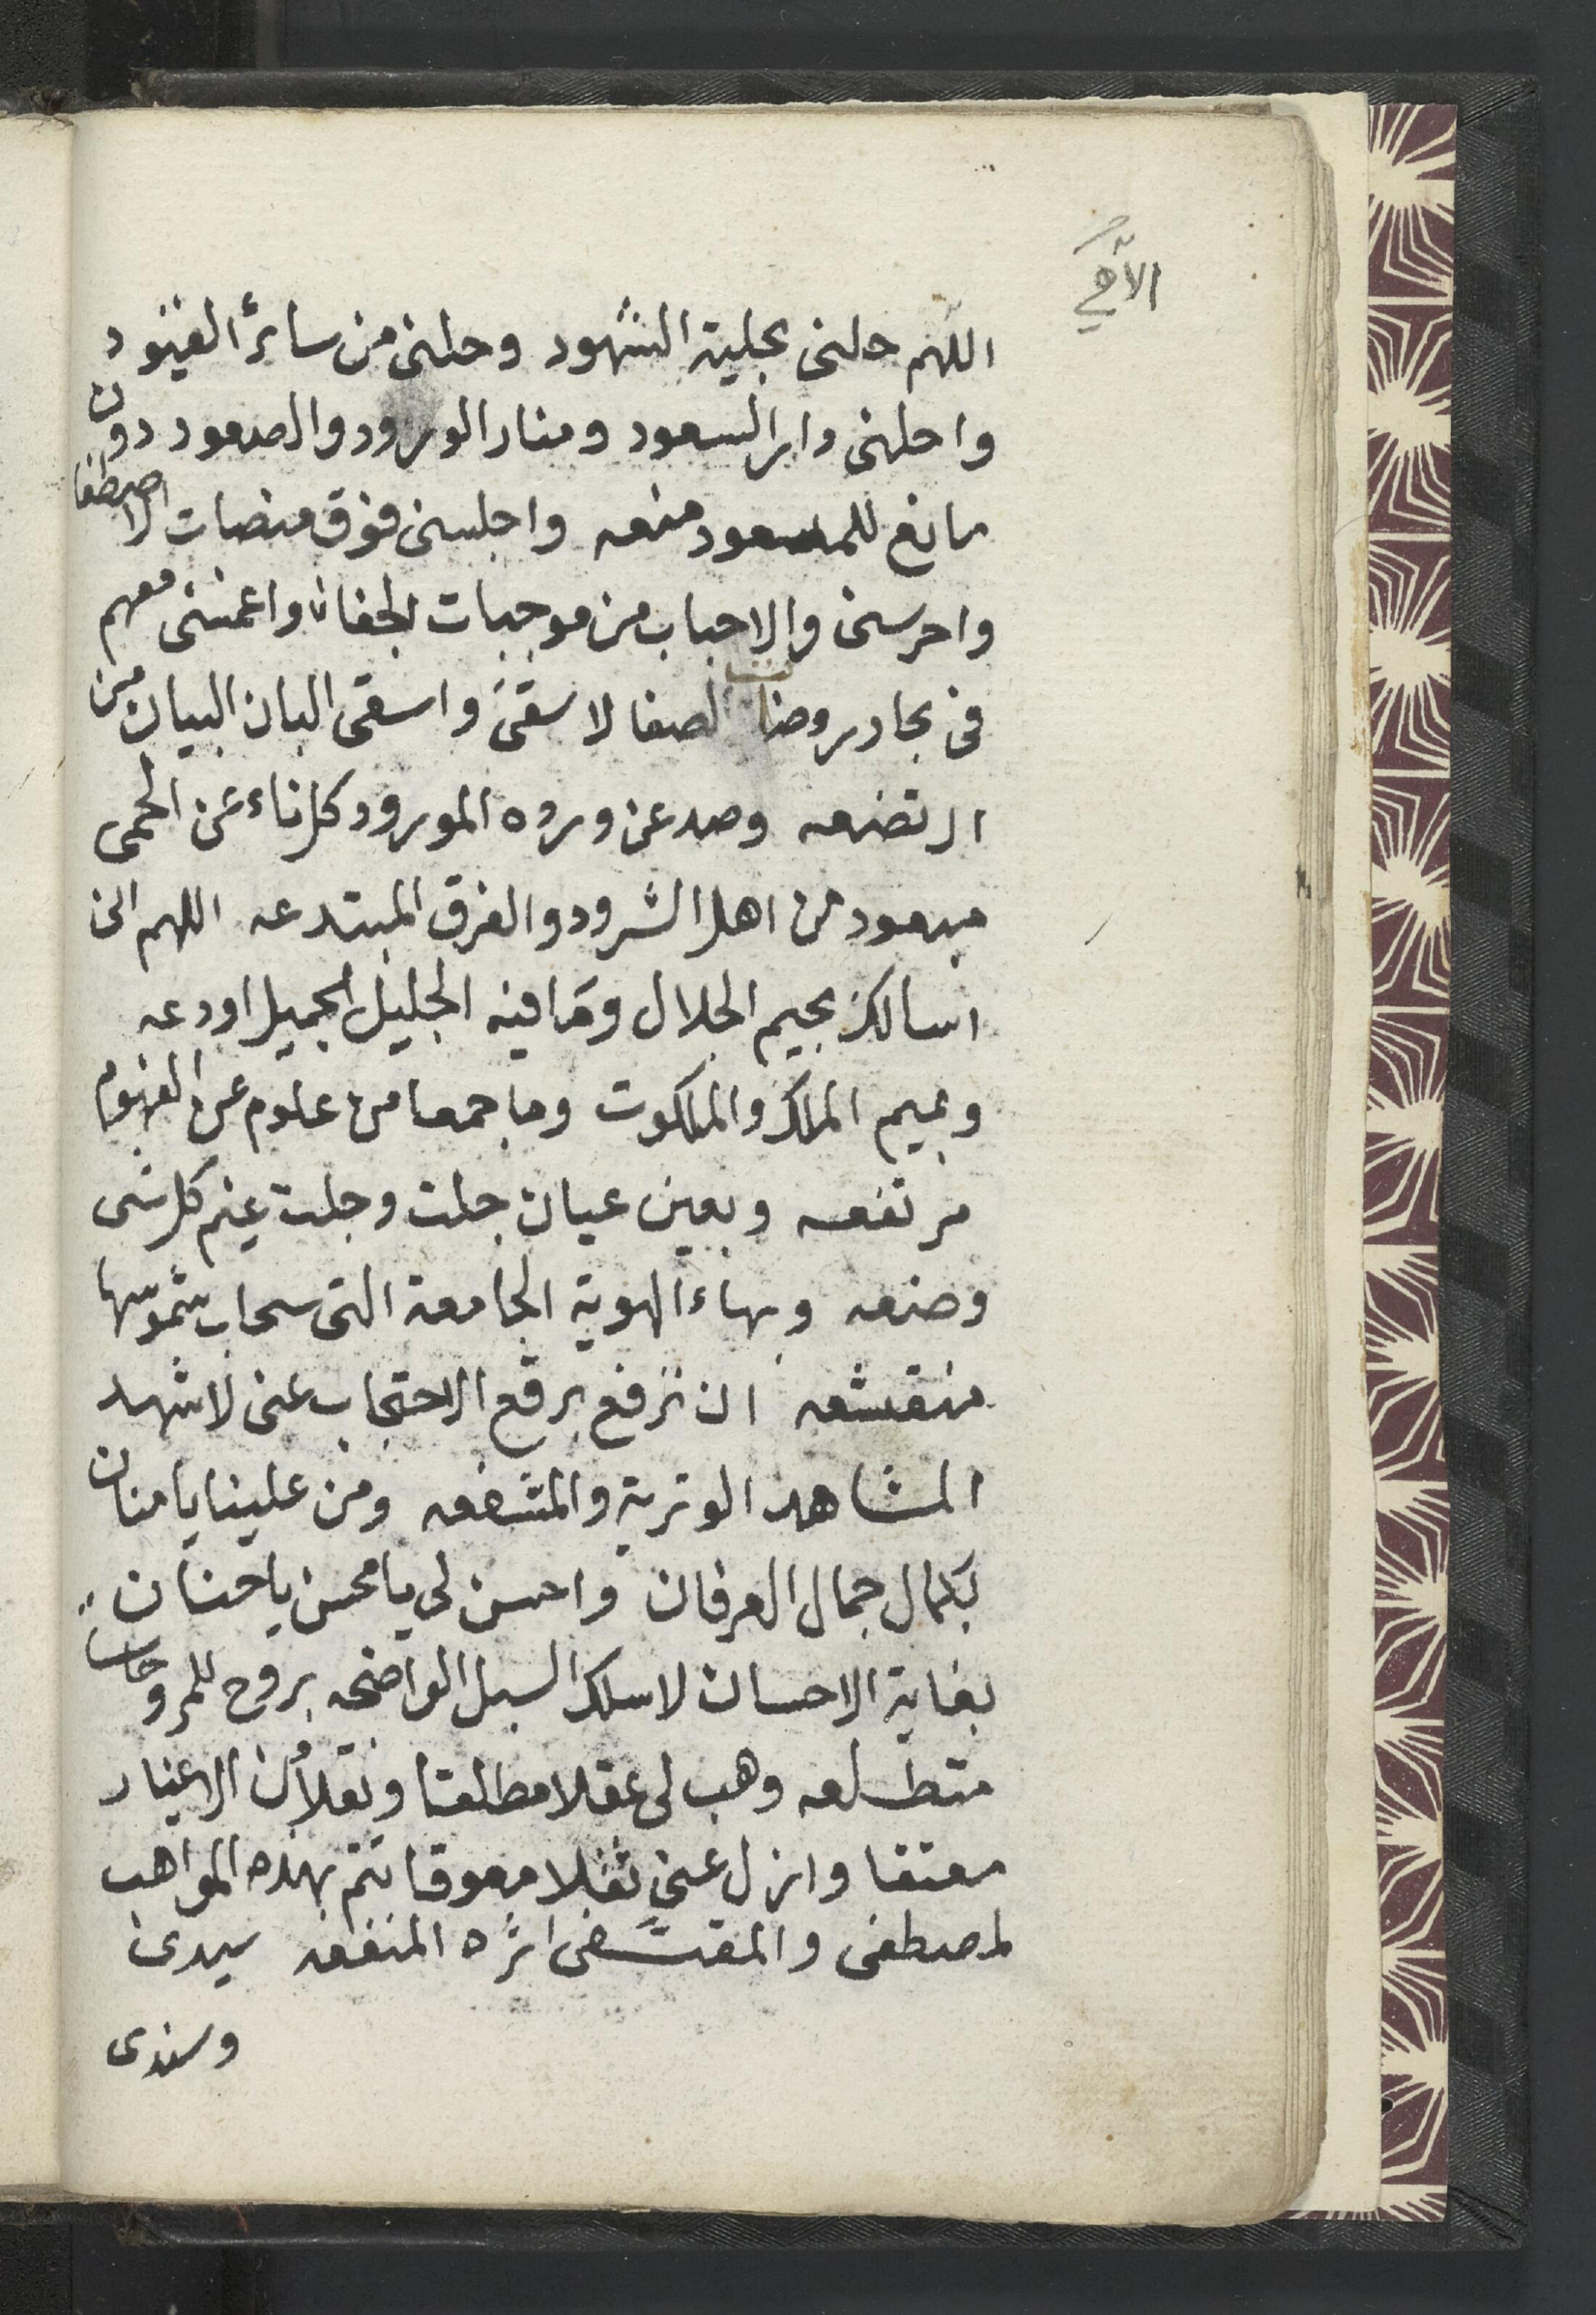 اللهم حلنى بحلية الشهود وحلنى من سائر القيود
واحلنى دار السعود ومنار الورود والصعود دون
مانع للمسعود منعه واجلسنى فوق منصات الاصطفا
واحرسنى والاحباب من موجبات الجفا واغمسنى معهم
فى بحار روضات الصفا لاسقى واسقى البان البيان من
ارتضعه وصد عن وروده المورود كل ناء عن الحمى
مبعود من اهل الشرود والفرق المبتدعه اللهم انى
اسالك بجيم الجلال وما فيه الجليل الجميل اودعه
وبميم الملك والملكوت وما جمعا من علوم عن الفهوم
مرتفعه وبعين عيان جلت وجلت غيم كل شى
وضعه وبهاء الهوية الجامعة التى سحاب شموسها
منقشعه ان ترفع برقع الاحتجاب عنى لاشهد
المشاهد الوترية والمشفعه ومن علينا يا منان
بكمال جمال العرفان واحسن لى يا محسن يا حنان
بغاية الاحسان لاسلك السبل الواضحه بروح للمروحات
متطلعه وهب لى عقلا مطلقا ونقلا الاغيار
معتقا وازل عنى ثقلا معوقا تتم بهذه المواهب
لمصطفى والمقتفى اثره المنفعه سيدى
وسندى